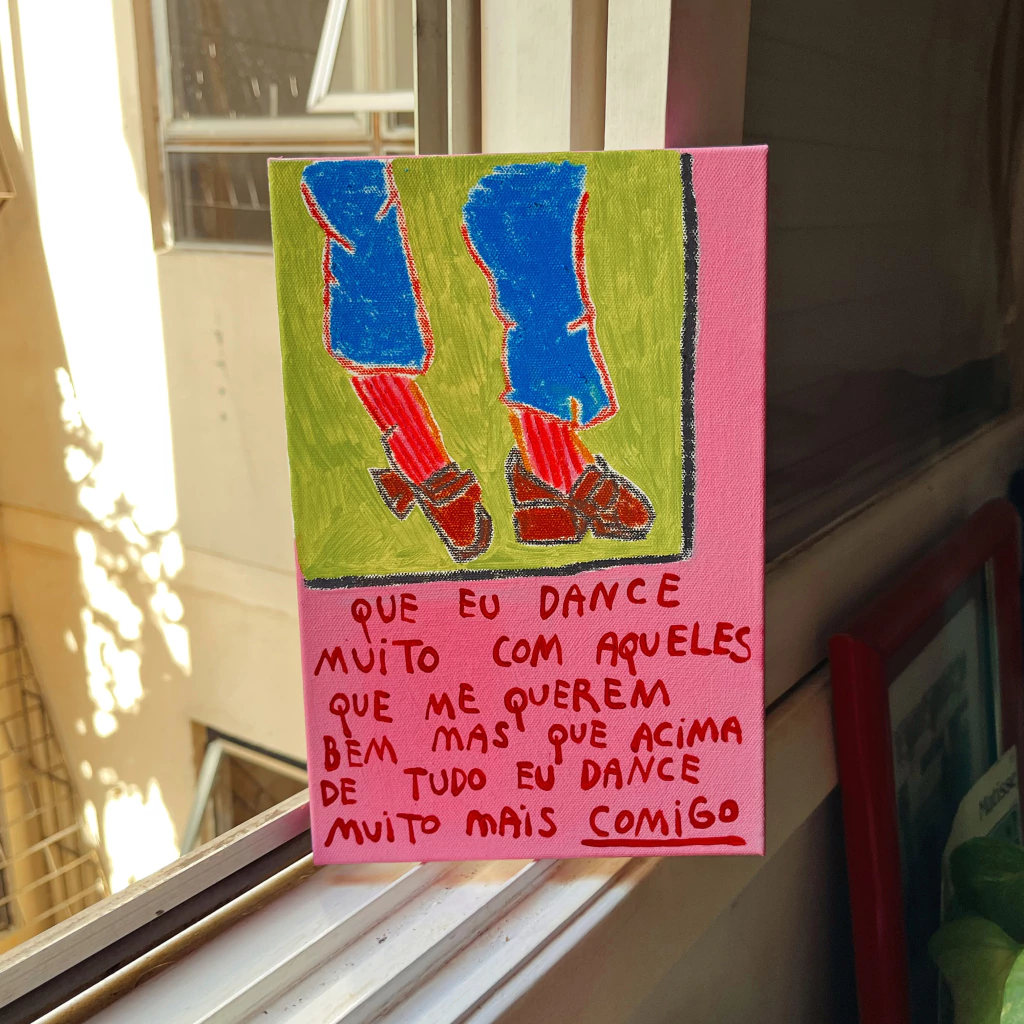 QUE EU DANCE
MUiTO COM AQUELES
QUE ME QUEREM
BEM MAS QUE ACiMA
DE TUDO EU DANCE
MUiTO MAiS COMiGO
Matisse